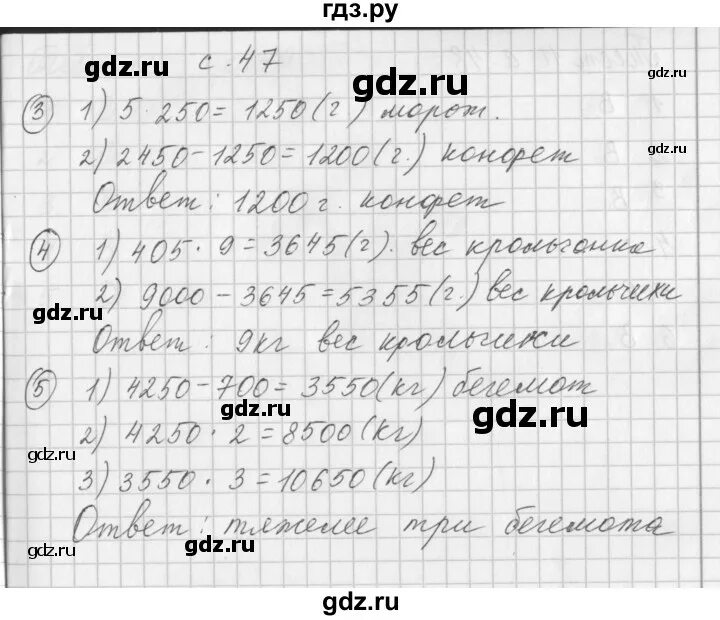 гдз.ру
с. 47
gdz.ru gdz.ru gdz.ru
③ 1) 5 · 250 = 1250 (г) морож.
2) 2450 - 1250 = 1200 (г.) конфет
gdz.ru gdz.ru
Ответ: 1200 г. конфет
④ 1) 405 · 9 = 3645 (г). вес крольчонка
gdz.ru gdz.ru gdz.ru
2) 9000 - 3645 = 5355 (г.) вес крольчихи
Ответ: 9кг вес крольчихи
gdz.ru gdz.ru
⑤ 1) 4250 - 700 = 3550 (кг) бегемот
gdz.ru gdz.ru
2) 4250 · 2 = 8500 (кг)
gdz.ru
3) 3550 · 3 = 10650 (кг)
Ответ: тяжелее три бегемота
gdz.ru gdz.ru gdz.ru
gdz.ru